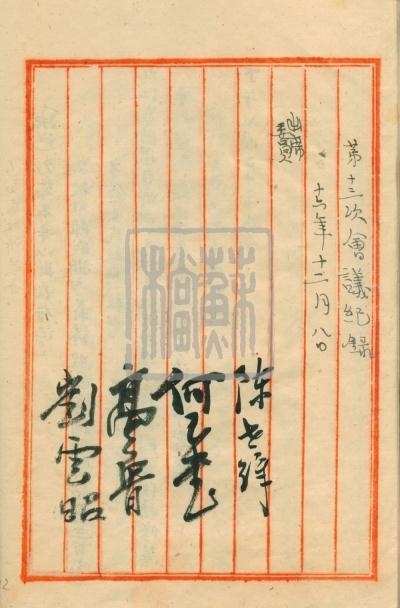 第十三次會議紀錄
十六年十二月八日
出席委員
陳世璋
何玉書
高魯
劉雲昭